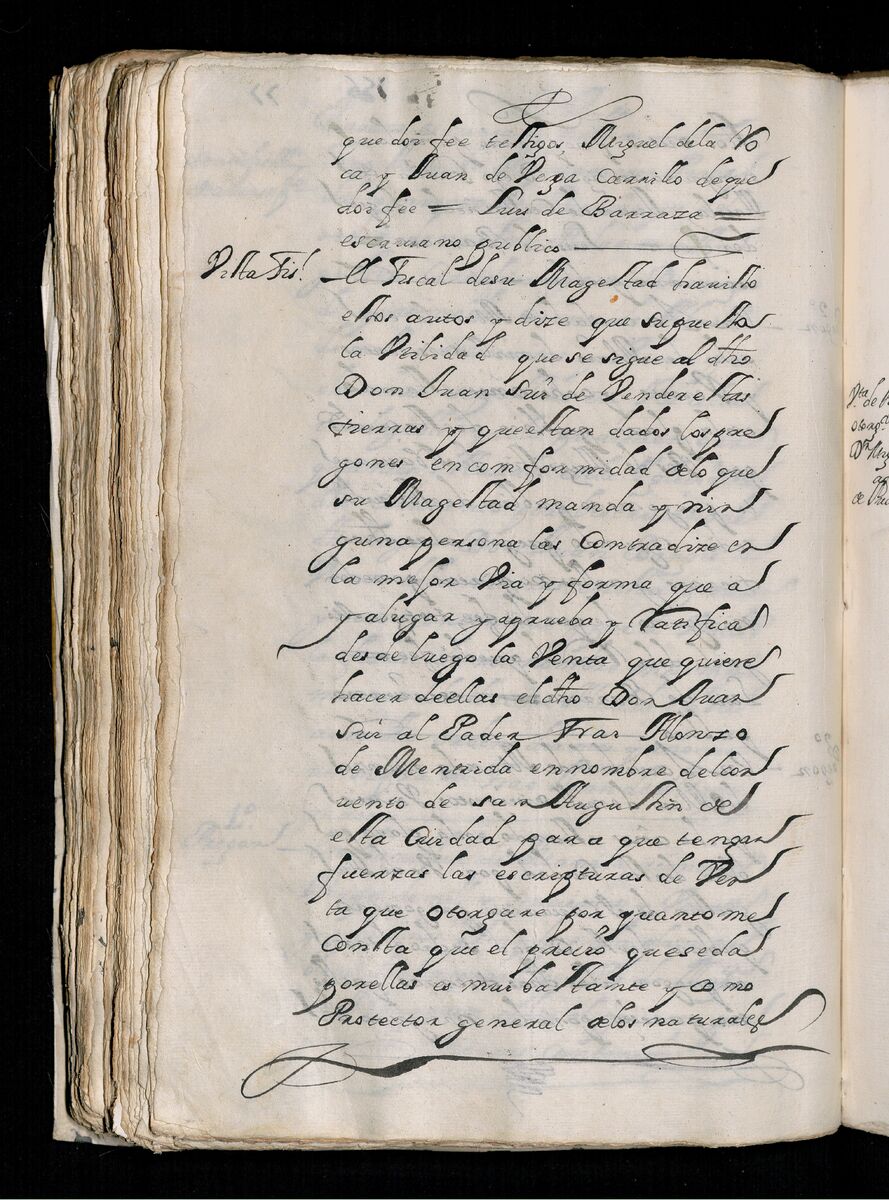 que doi fee testigos, Miguel de la Vo
ca y Juan de Vega Carrillo de que
doi fee = Luis de Barraza =
escriuano publico
Vista Fis.l
El Fiscal de su Magestad ha uisto
estos autos y dize que supuesto
la Vtilidad que se sigue al dho
Don Juan Suri de Vender estas
tierras y que estan dados los pre
gones en comformidad de lo que
su Magestad manda y nin
guna persona las Contradize en
la mejor Via y forma que a
ya lugar y aprueba y Ratifica
desde luego la Venta que quiere
hacer de ellas el dho Don Juan
Suri al Pader Frai Alonzo
de Mentrida en nombre del con
uento de san Augustin de
esta Ciudad para que tengan
fuerzas las escripturas de Ven
ta que otorgare por quanto me
Consta que el precio que se da
por ellas es mui bastante y como
Protector general de los naturales